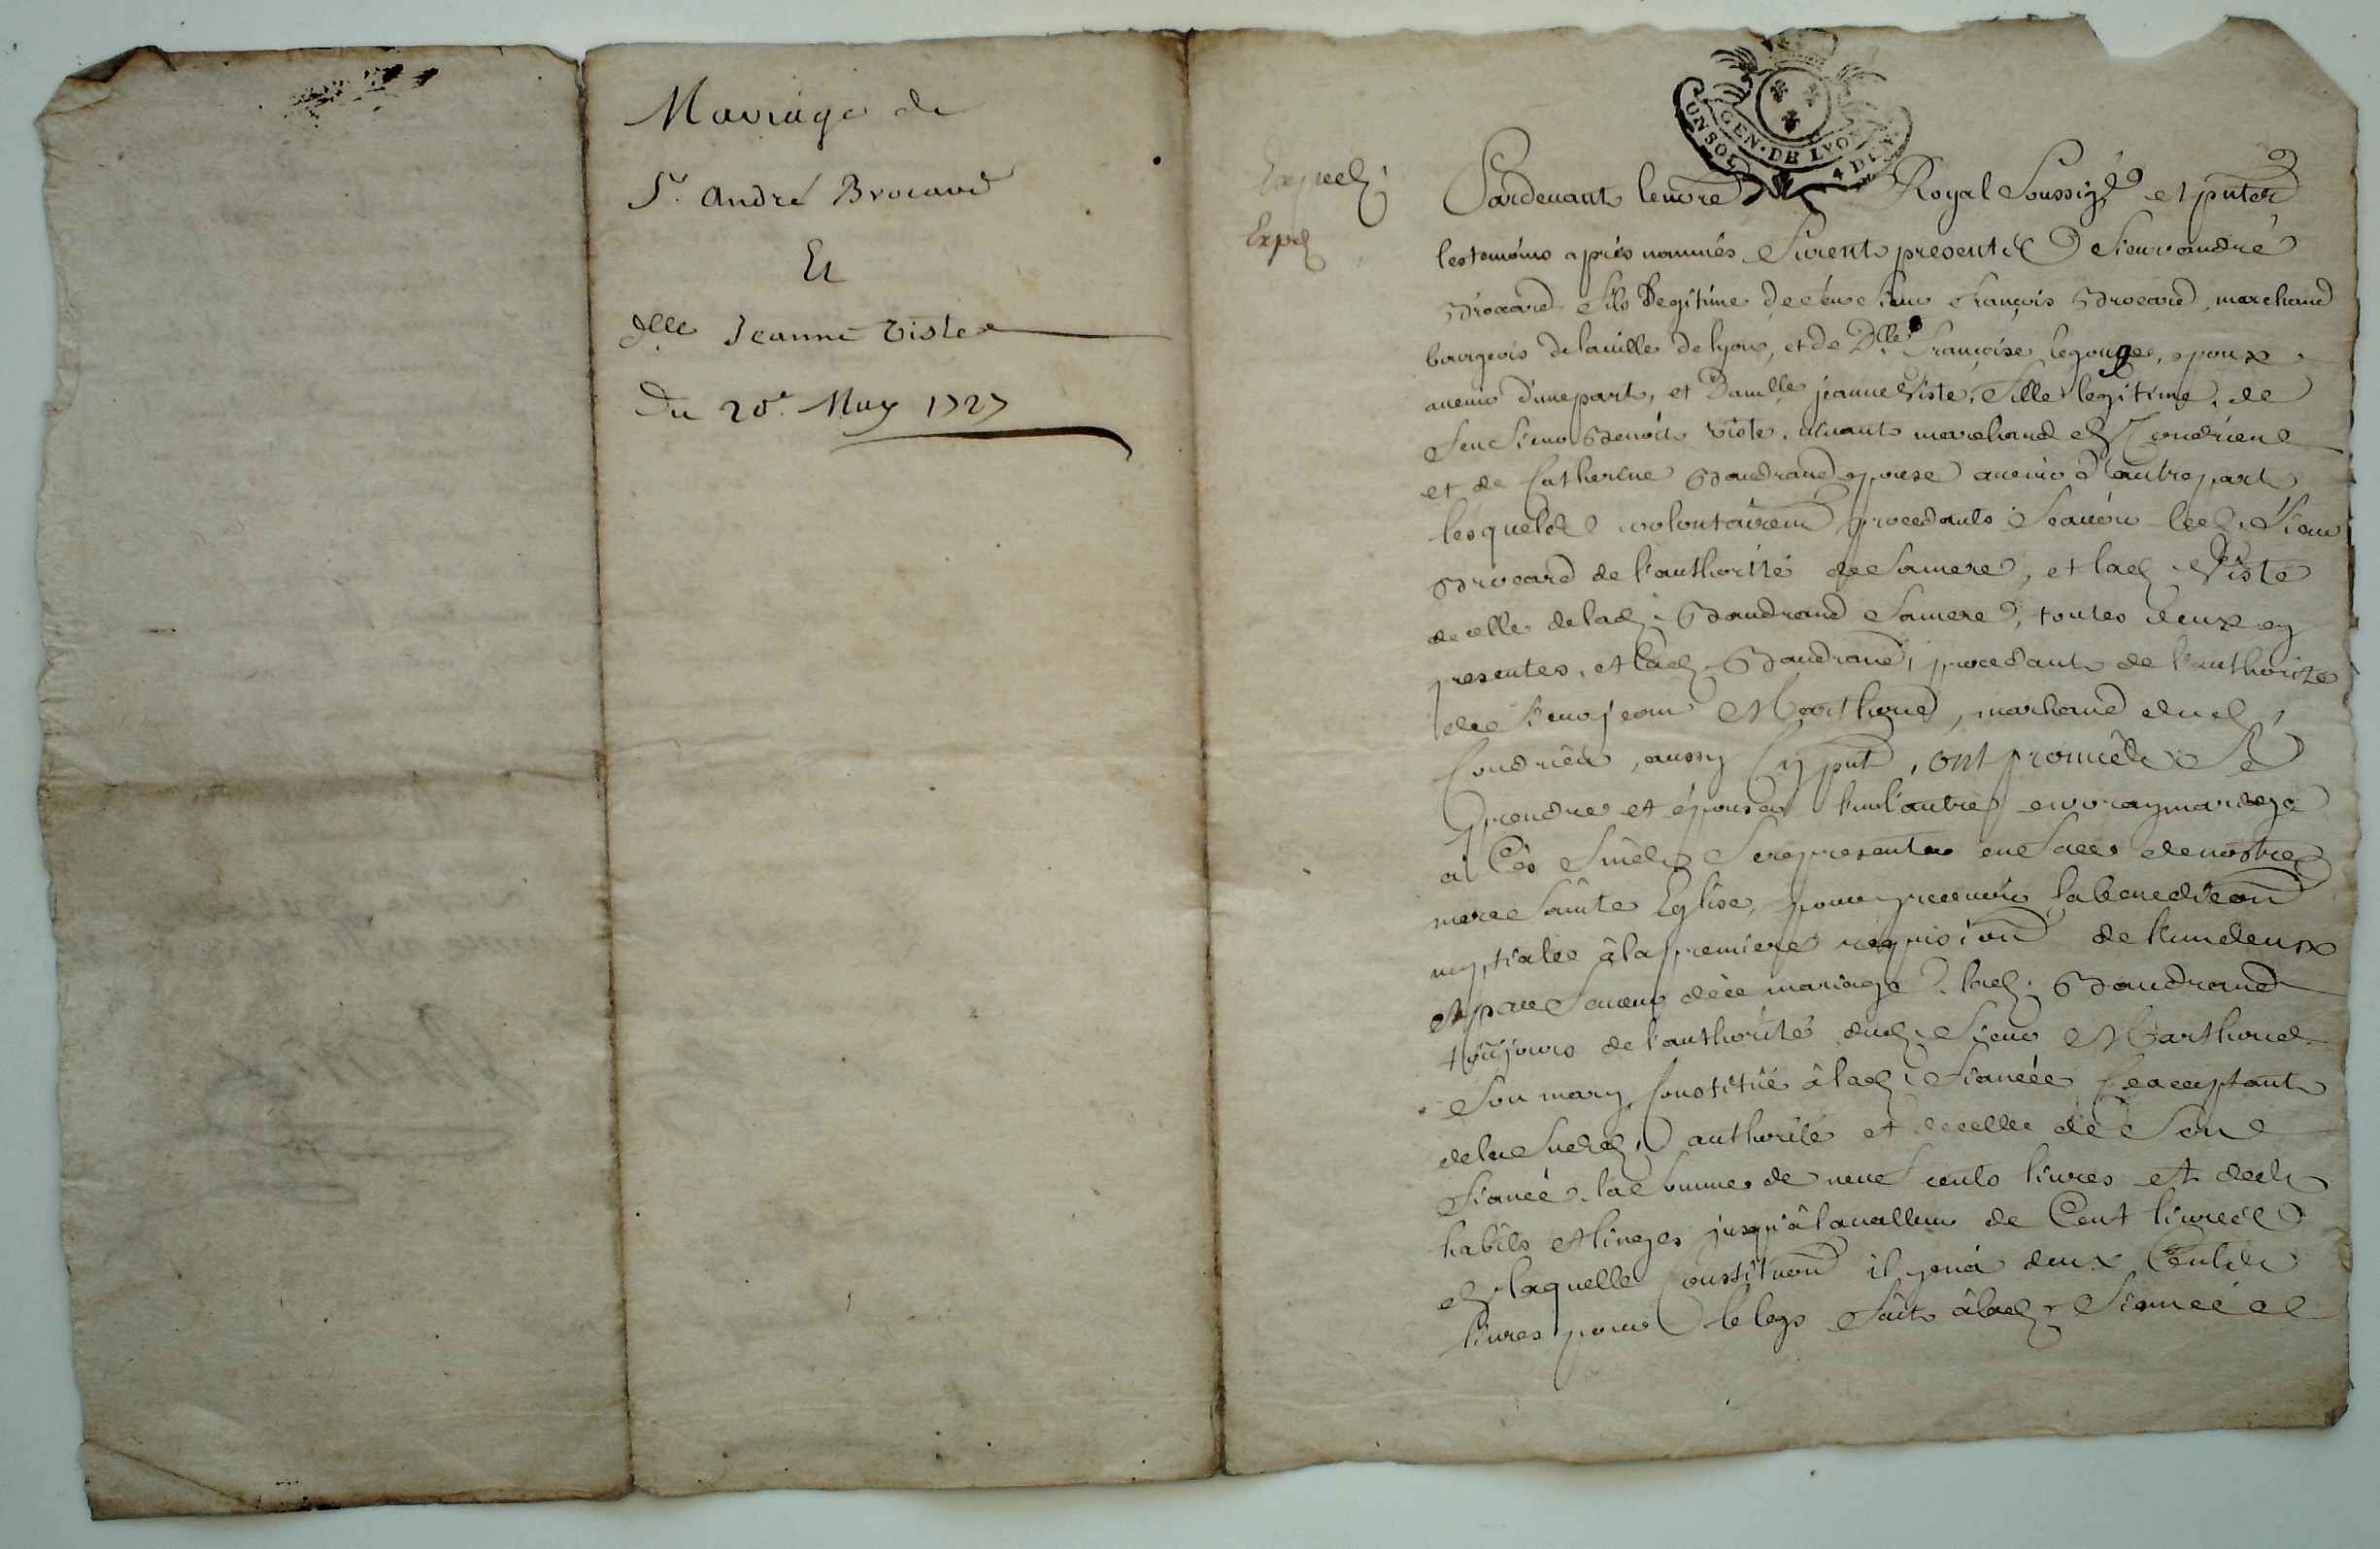 Mariage de
Sr. André Brocard
Et
dlle Jeanne Viste
Du 20e. May 1727
GEN. DE LYON
UN SOL 4 DEN
Exped
Exped
Pardevant le no.re Royal soussig.é et p.nts
les temoins apres nommés furent presents sieur andré
Brocard fils legitime de sieur françois Brocard, marchand
bourgeois de la ville de lyon, et de Dlle françoise legouge, epoux
avenir d'une part, et Damlle jeanne Viste, fille legitime, de
feu sieur Benoit Viste, vivant marchand Condrieu
et de Catherine Baudrand epouse avenir d'autre part
lesquels volontairem.t procedants sçavoir led. sieur
Brocard de l'authorité de sa mere, et lad. Viste
de celle de lad. Baudrand sa mere, toutes deux cy
presentes, et lad. Baudrand, procedant de l'authorité
de sieur jean Marthoud, marchand dud.
Condrieu, aussy cy p.nt, ont promis se
prendre et épouser l'un l'autre en vray mariage
à ces fins se representer en face de nostre
mere sainte Eglise, pour recevoir la benediction
nuptiale à la premiere requision de l'un deux
et par faveur de ce mariage lad. Baudrand
toujours de l'authorité dud. sieur Marthoud
son mary, Constitue à lad. fiancée, ce acceptant
de la susd. authorité et de celle de son
fiancé, la somme de neuf cents livres et des
habits et linges jusqu'à la valleur de Cent livres
laquelle Constituon il y en a deux Cents
livres pour le legs fait à lad. fiancée